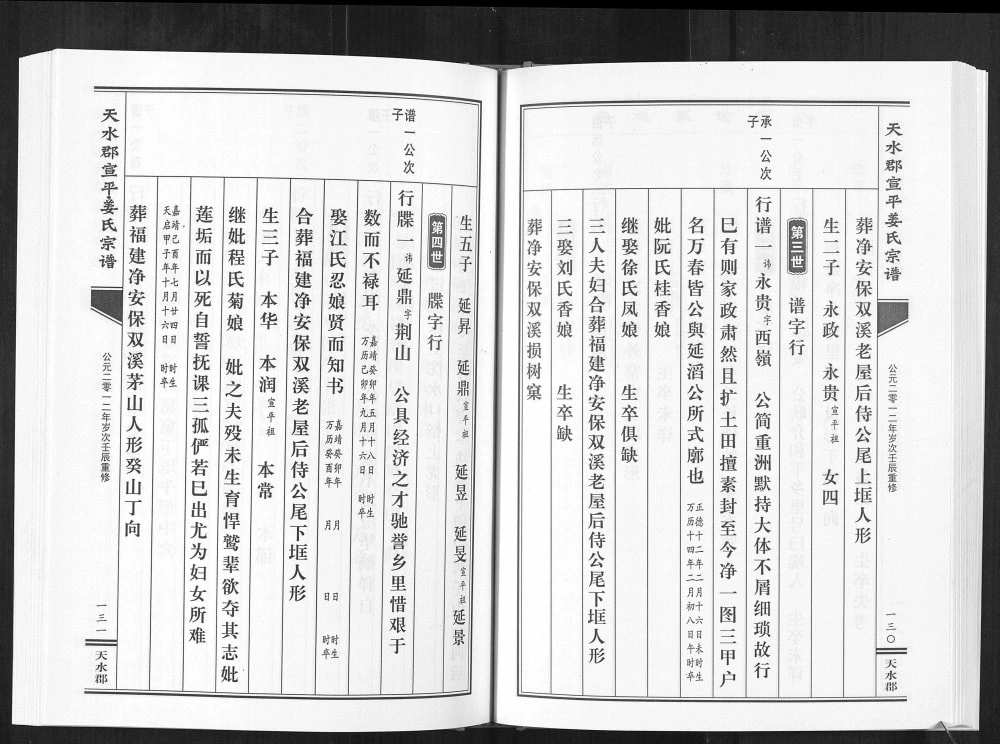 天水郡宣平姜氏宗谱
公元二零一二年岁次壬辰重修
一三〇
天水郡
葬净安保双溪老屋后侍公尾上垇人形
生二子 永政 永贵宣平祖 女四
第三世 谱字行
承一公次子
行谱一讳永贵字西嶺 公简重洲默持大体不屑细琐故行
巳有则家政肃然且扩土田擅素封至今净一图三甲户
名万春皆公與延滔公所式廓也 正德十二年二月十六日未时生
万历十四年二月初八日午时卒
妣阮氏桂香娘
继娶徐氏凤娘 生卒俱缺
三人夫妇合葬福建净安保双溪老屋后侍公尾下垇人形
三娶刘氏香娘 生卒缺
葬净安保双溪损树窠
生五子 延昇 延鼎宣平祖 延昱 延旻宣平祖 延景
第四世 牒字行
谱一公次子
行牒一讳延鼎字荆山 公具经济之才驰誉乡里惜艰于
数而不禄耳 嘉靖癸卯年五月十八日 时生
万历己卯年九月十六日 时卒
娶江氏忍娘贤而知书 嘉靖癸卯年 月 日 时生
万历癸酉年 月 日 时卒
合葬福建净安保双溪老屋后侍公尾下垇人形
生三子 本华 本润宣平祖 本常
继妣程氏菊娘 妣之夫殁未生育悍鹫辈欲夺其志妣
莲垢而以死自誓抚课三孤俨若巳出尤为妇女所难
嘉靖己酉年七月廿四日 时生
天启甲子年十月十六日 时卒
葬福建净安保双溪茅山人形癸山丁向
天水郡宣平姜氏宗谱
公元二零一二年岁次壬辰重修
一三一
天水郡